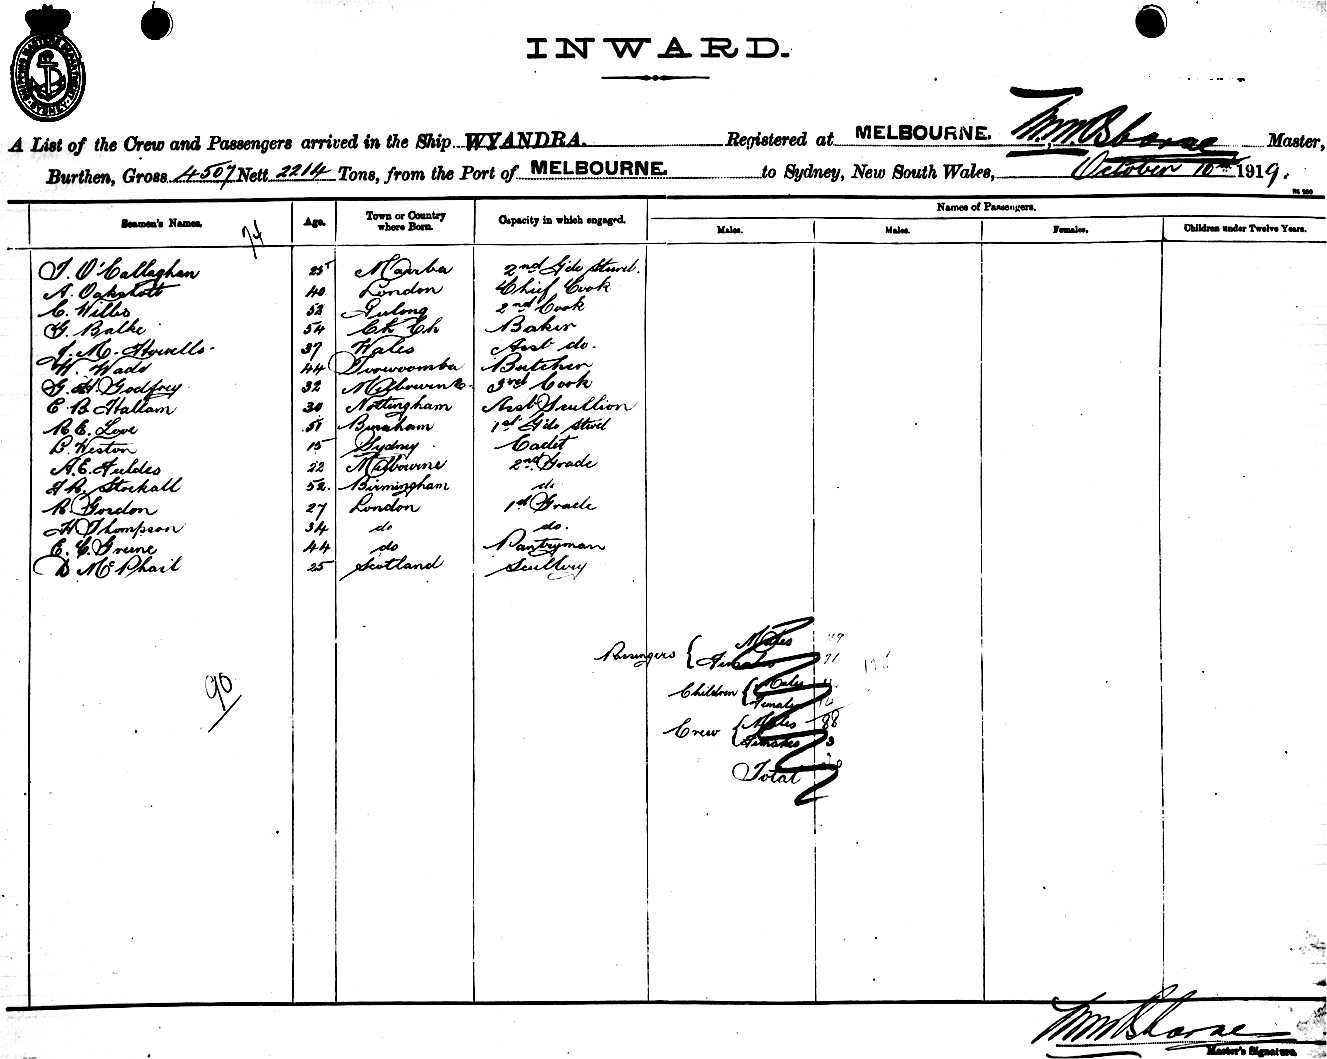 INWARD.
SHIPPING MASTER'S DEPARTMENT SYDNEY
A List of the Crew and Passengers arrived in the Ship WYANDRA. Registered at MELBOURNE. Master,
Burthen, Gross 4507 Nett 2214 Tons, from the Port of MELBOURNE. to Sydney, New South Wales, October 10th 1919.
Names of Passengers.
Seamen's Names. Age. Town or Country where Born. Capacity in which engaged. Males. Males. Females. Children under Twelve Years.
74
T. O'Callaghan 25 2nd Gde Stwd.
A. Oakshott 40 London Chief Cook
C. Willis 52 2nd Cook
G. Balke 54 Ch Ch Baker
J. M. Howells 37 Wales Asst do.
W. Wade 44 Toowoomba Butcher
G. H Godfrey 32 Melbourne 3rd Cook
E B Hallam 30 Nottingham Asst Scullion
R E. Love 51 1st Gde Stwd
P. Weston 15 Sydney Cadet
A. E. 22 Melbourne 2nd Grade
R. Stockall 52. Birmingham do
R. Gordon 27 London 1st Grade
H Thompson 34 do do.
E. C. Greene 44 do Pantryman
D McPhail 25 Scotland Scullery
Passengers { Males
Females 71
90
Children { Males
Females
Crew { Males 88
Females 3
Total
Master's Signature.